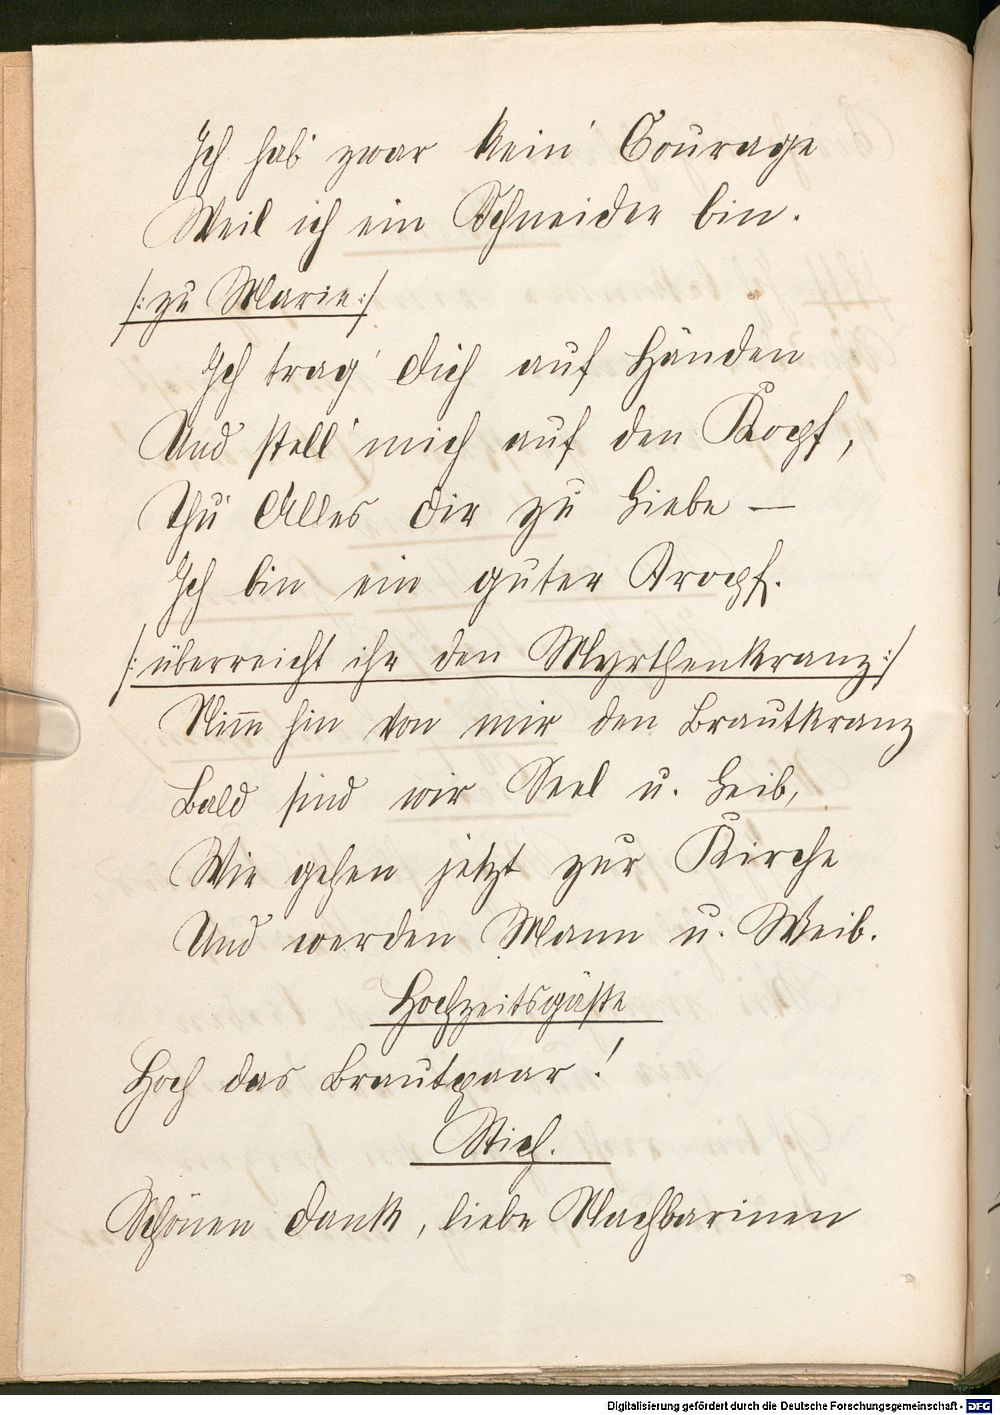 Ich hab' zwar kein' Courage
Weil ich ein Schneider bin.
/: zu Marie :/
Ich trag' dich auf Händen
Und stell' mich auf den Kopf,
Thu' Alles dir zu Liebe —
Ich bin ein guter Tropf.
/: überreicht ihr den Myrthenkranz :/
Nim̅ hin von mir den Brautkranz
Bald sind wir Seel u. Leib,
Wir gehen jetzt zur Kirche
Und werden Mann u. Weib.
Hochzeitsgäste
Hoch das Brautpaar!
Stich.
Schönen Dank, liebe Nachbarinen
Digitalisierung gefördert durch die Deutsche Forschungsgemeinschaft - DFG